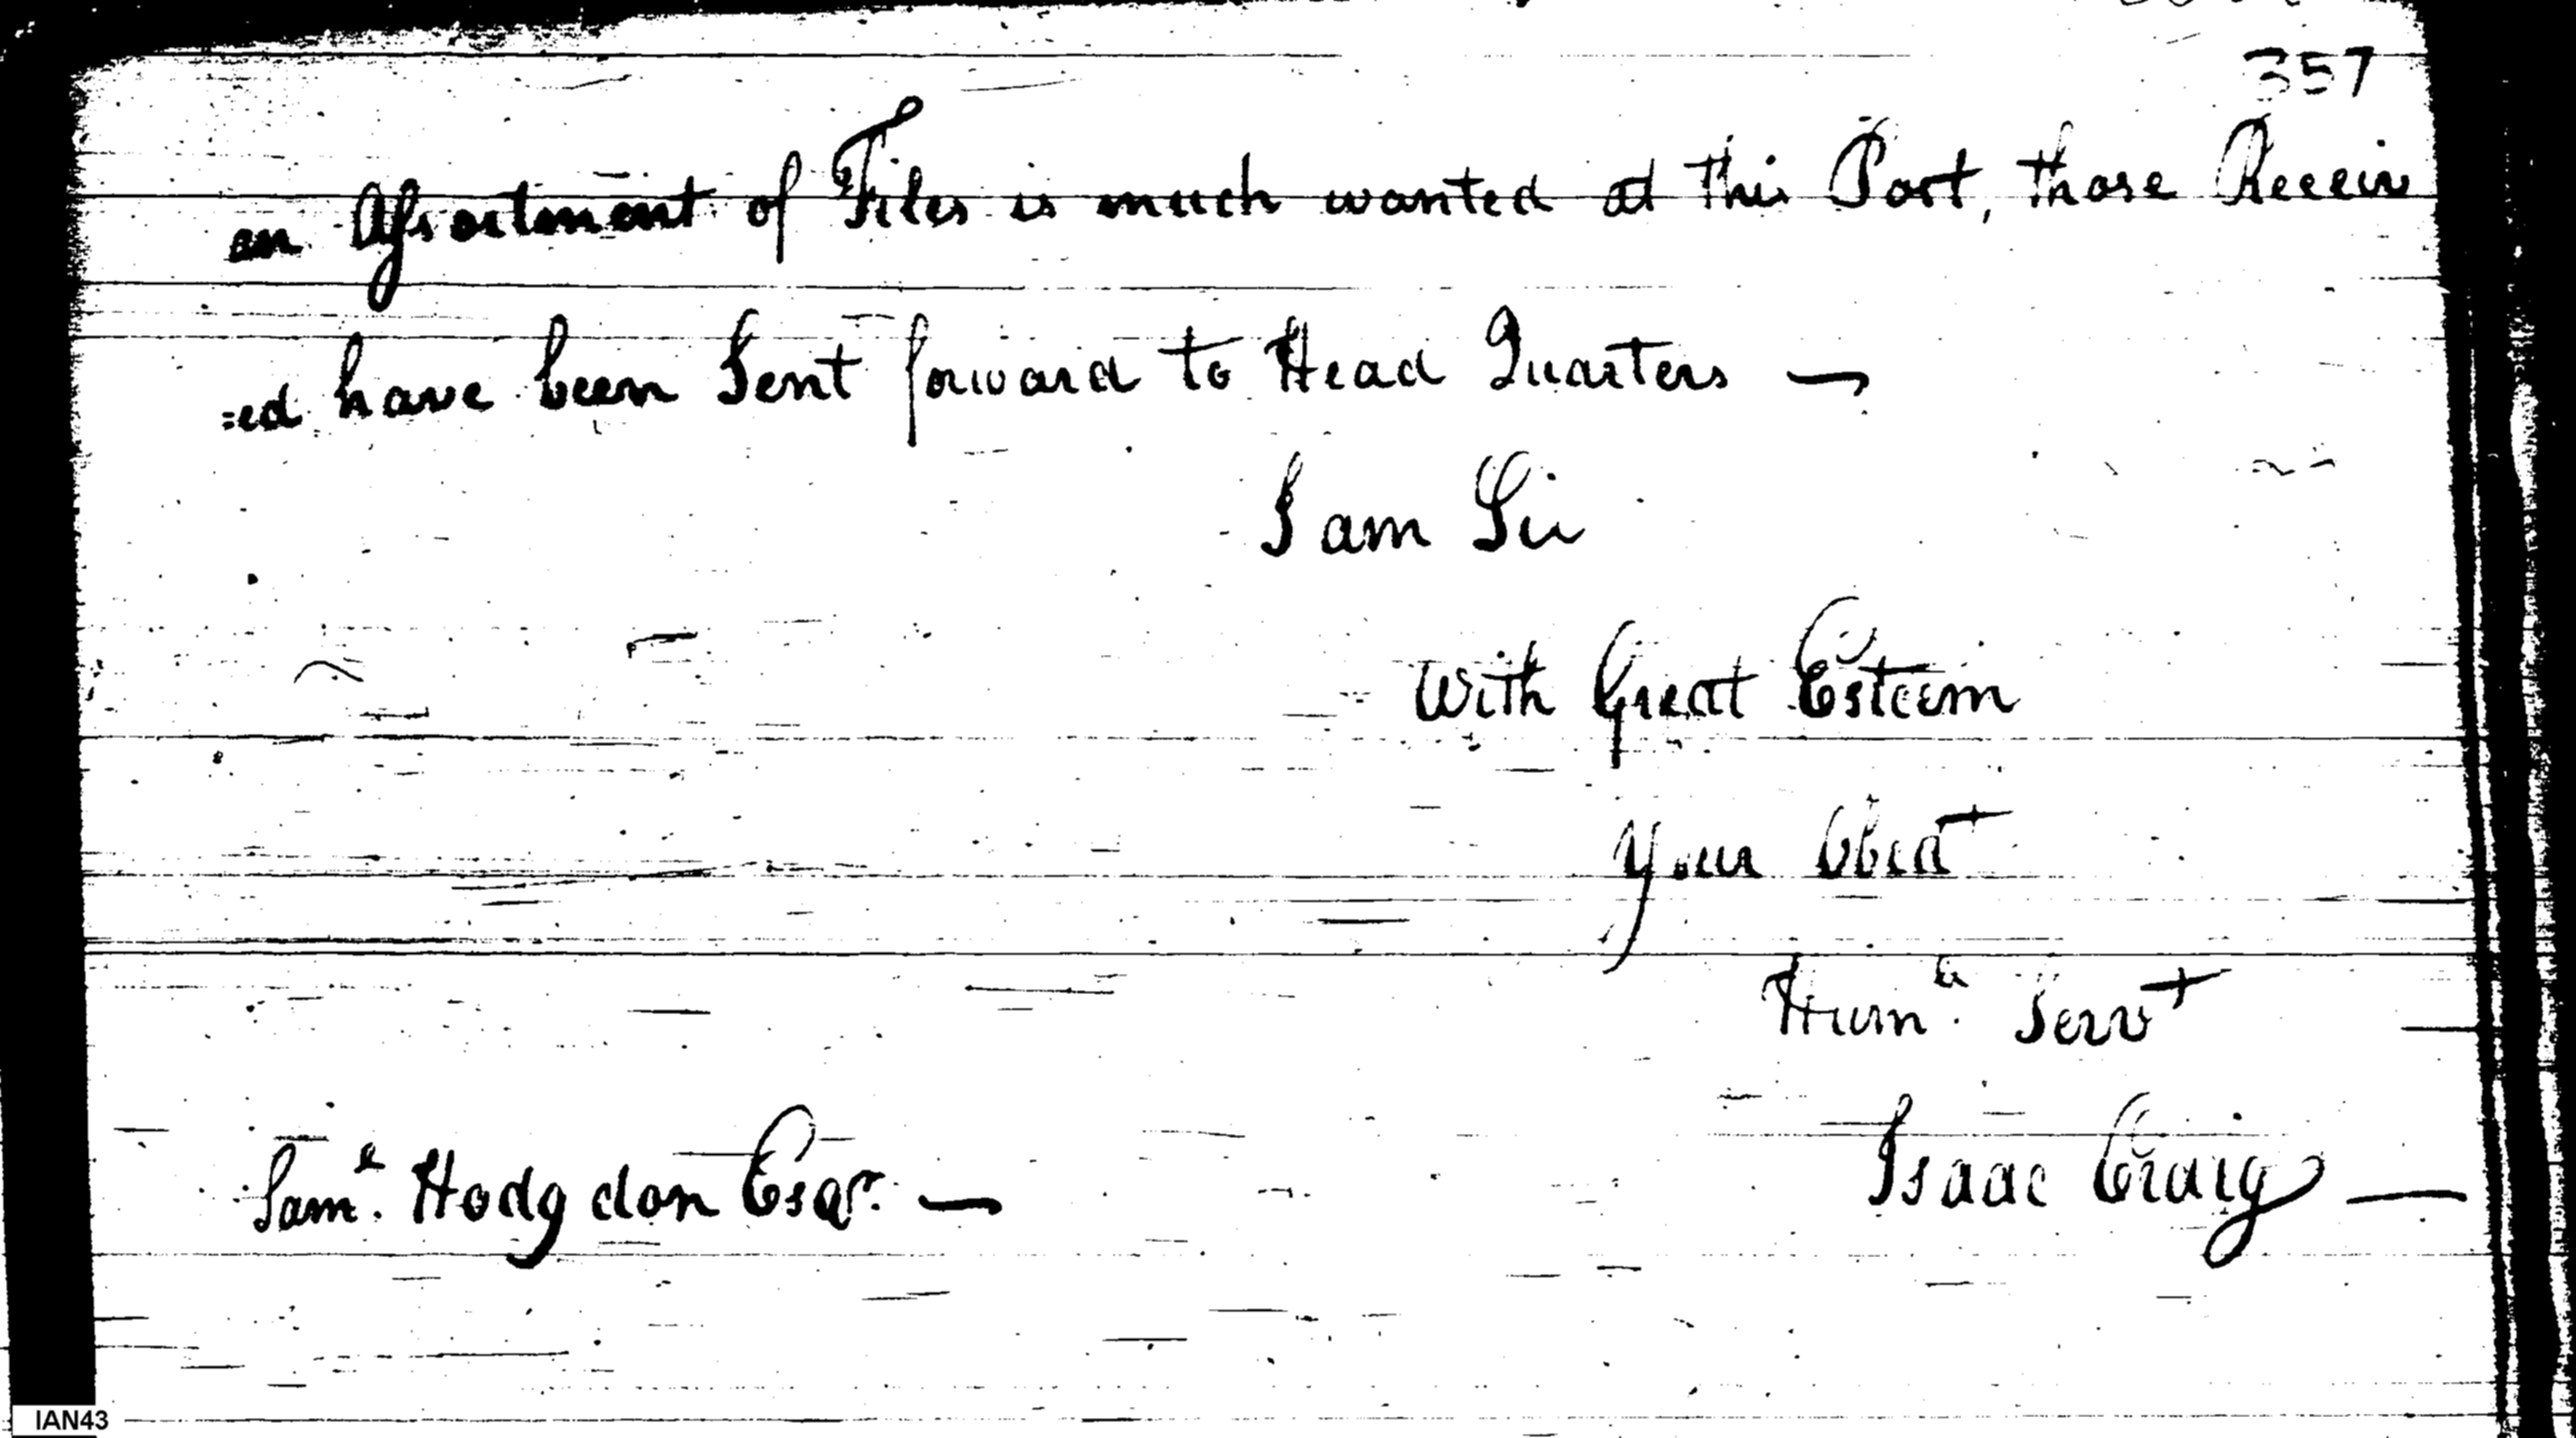 357
an Assortment of Files is much wanted at this Post, those Receiv
=ed have been Sent forward to Head Quarters —
I am Sir
With Great Esteem
Your Obedt
Humle. Servt
Isaac Craig —
Saml. Hodgdon Esqr. —
IAN43